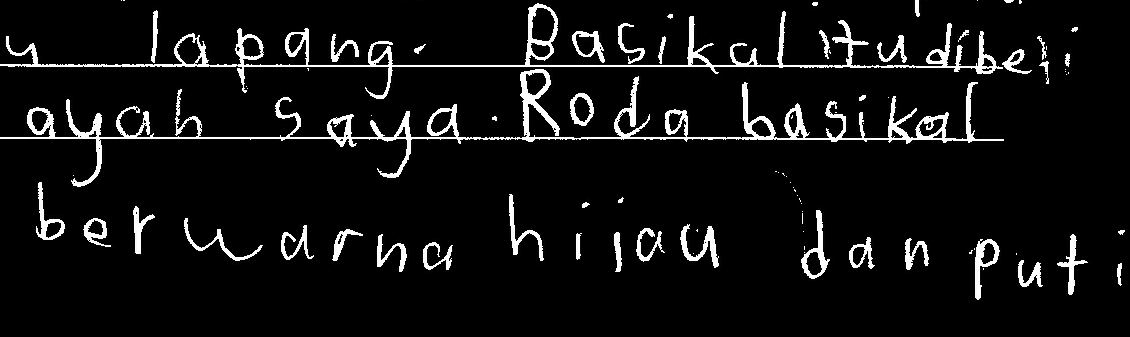 lapang. Basikal itu dibeli
ayah saya. Roda basikal
berwarna hijau dan puti